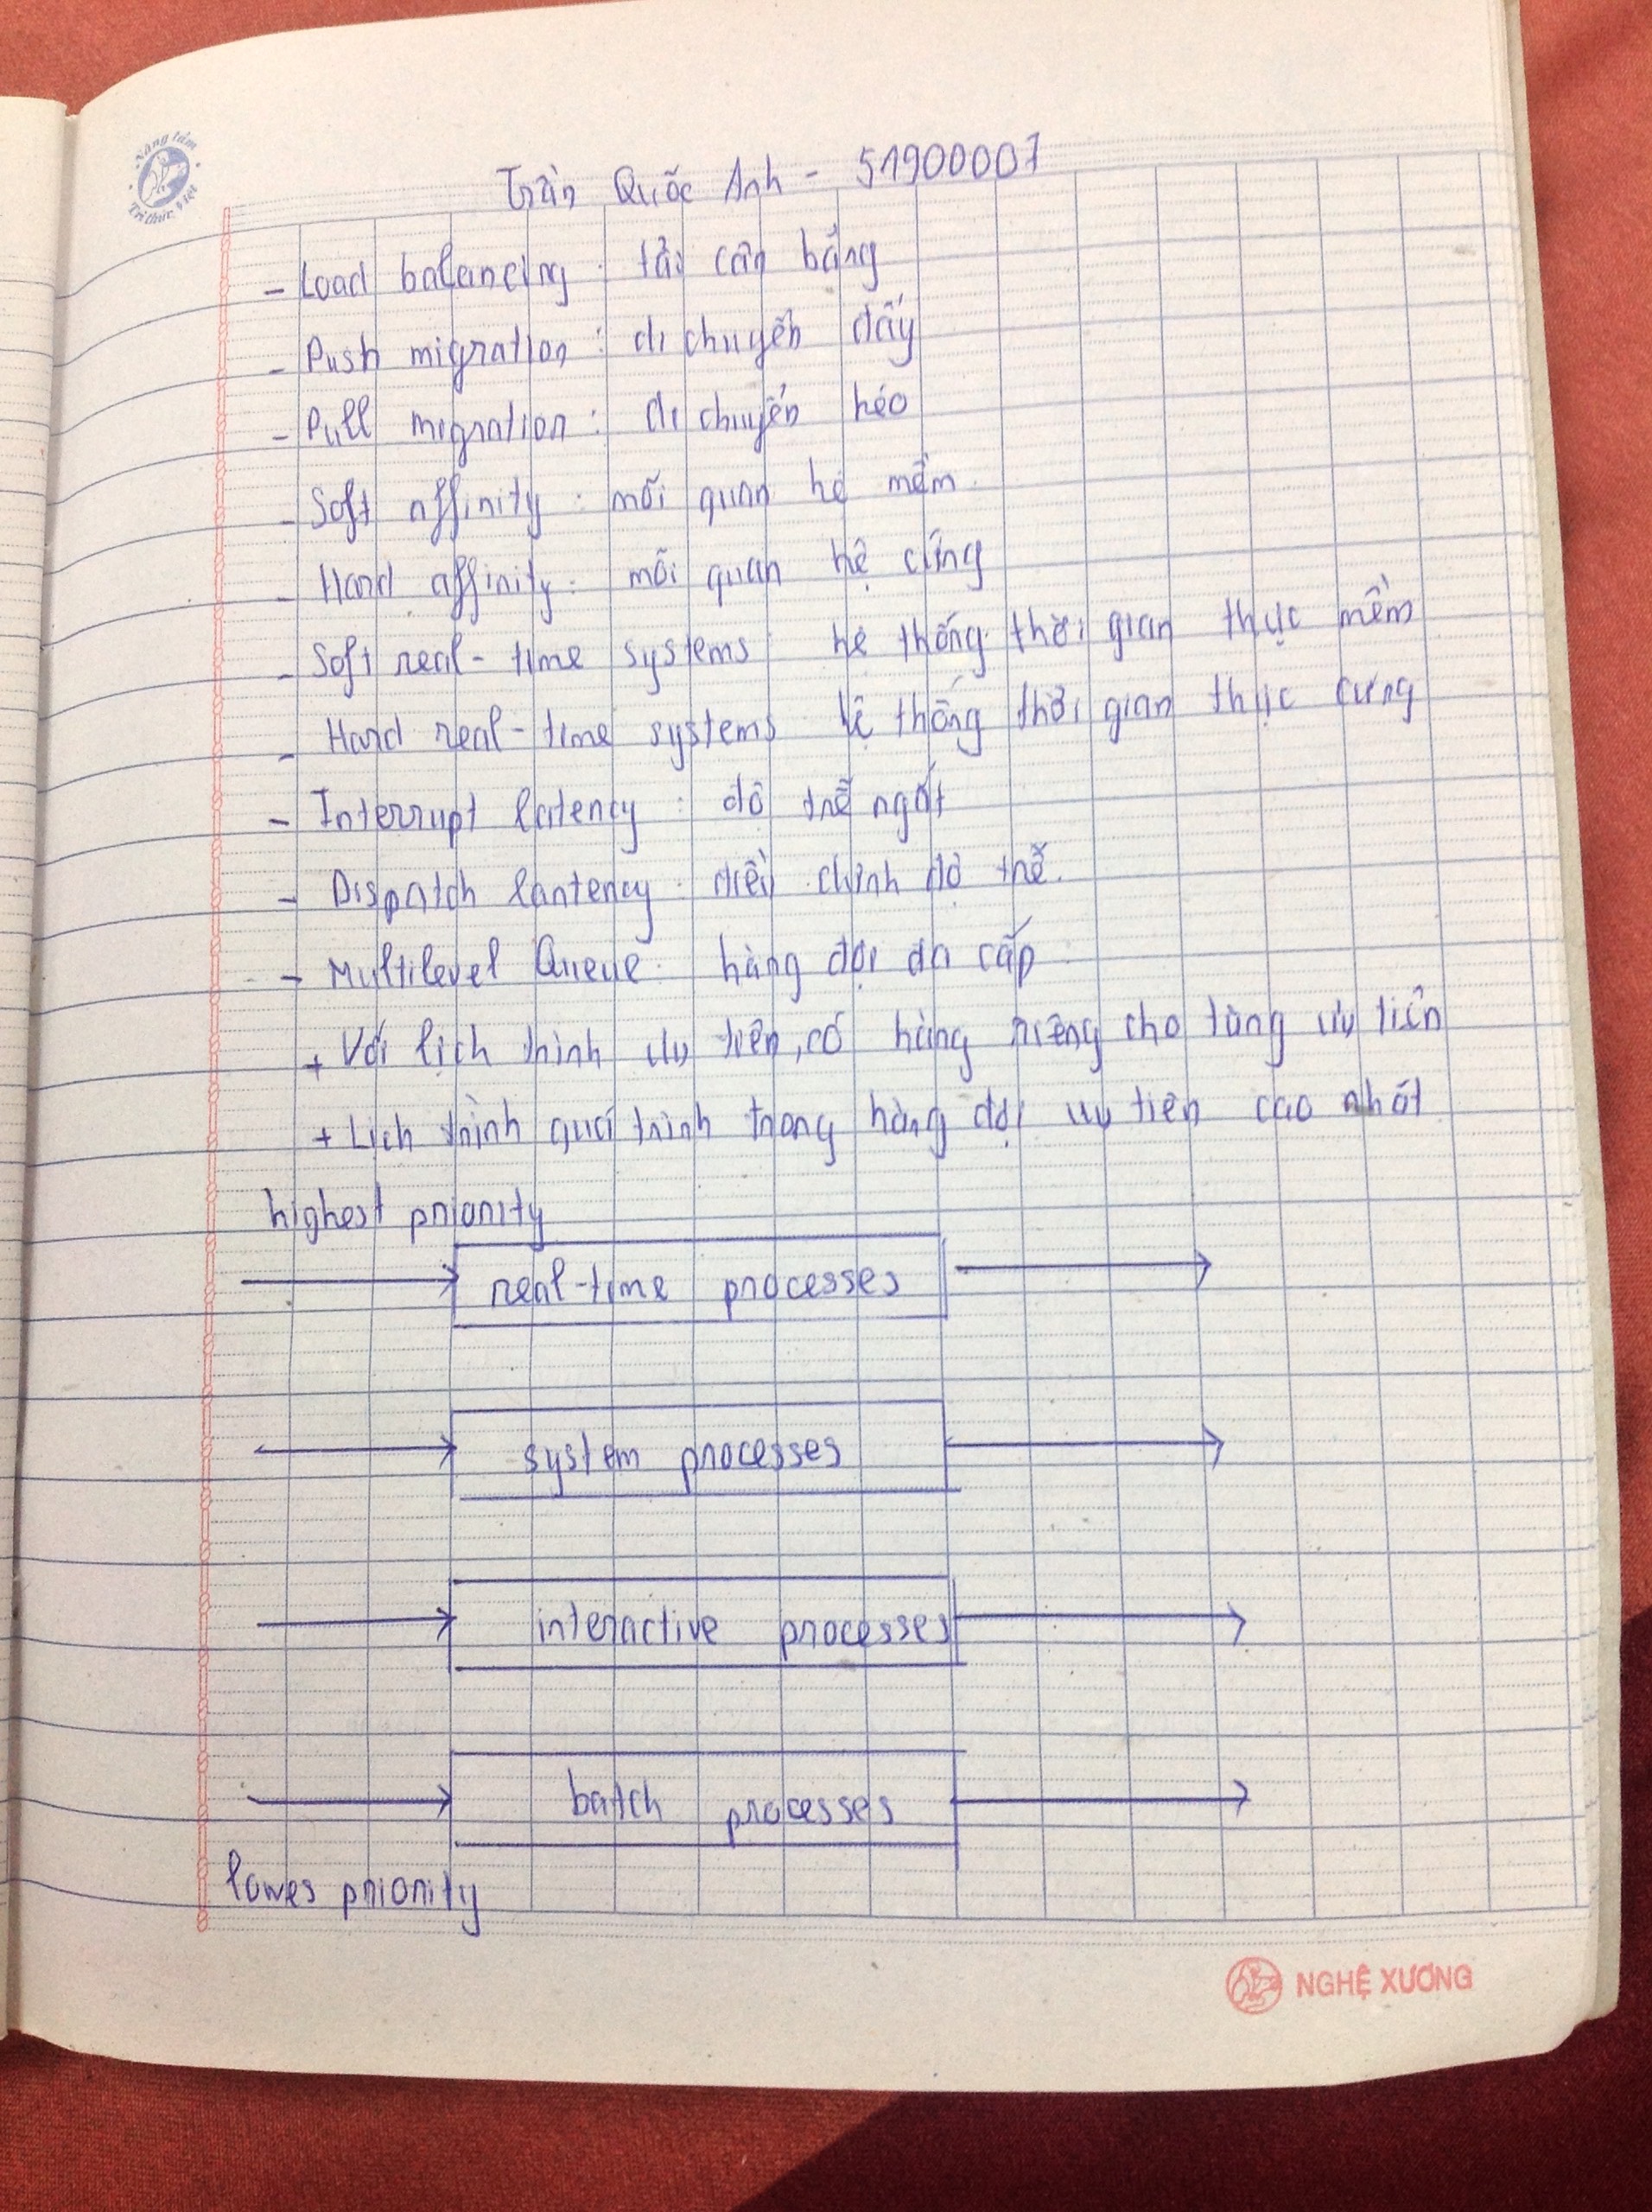 Nâng tầm
Tri thức Việt
Trần Quốc Anh - 51900007
- Load balancing : tải cân bằng
- Push migration : di chuyển đẩy
- Pull migration : di chuyển kéo
- Soft affinity : mối quan hệ mềm
- Hard affinity : mối quan hệ cứng
- Soft real-time systems : hệ thống thời gian thực mềm
- Hard real-time systems hệ thống thời gian thực cứng
- Interrupt latency : độ trễ ngắt
- Dispatch lantency : điều chỉnh độ trễ.
- Multilevel Queue : hàng đợi đa cấp
+ Với lịch trình ưu tiên, có hàng riêng cho từng ưu tiên
+ Lịch trình quá trình trong hàng đợi ưu tiên cao nhất
highest priority
real-time processes
system processes
interactive processes
batch processes
lowes priority
NGHỆ XƯƠNG